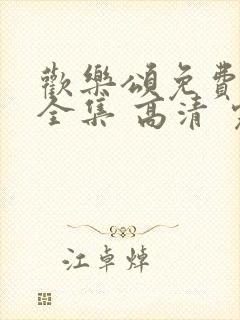 歡樂頌免費
全集 高清
江卓婥